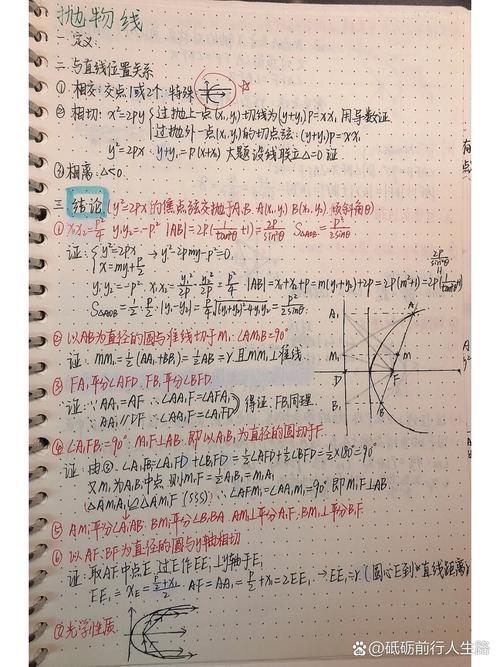 抛物线
一.定义:
二.与直线位置关系
① 相交:交点1或2个.特殊
② 相切: x²=2py { 过抛上一点(x₁,y₁)切线为(y+y₁)p=xx₁ 用导数证
过抛外一点(x₁,y₁)的切点弦:(y+y₁)p=xx₁
y²=2px: y·y₁=p(x+x₁) 大题设线联立△=0证
③ 相离:△<0.
三.结论 (y²=2px的焦点弦交抛于A,B. A(x₁,y₁) B(x₂,y₂) 倾斜角θ)
① x₁x₂=p²/4 y₁y₂=-p² |AB|=2p(1/tan²θ+1)=2p/sin²θ S△AOB=p²/2sinθ
证:{ y²=2px → y²-2pmy-p²=0.
x=my+p/2
y₁y₂=-p² x₁x₂=y₁²/2p·y₂²/2p=p²/4 |AB|=x₁+x₂+p=m(y₁+y₂)+2p=2p(m²+1)=2p(1/tan²θ+1)
2p/sin²θ
S△AOB=1/2·p/2·|y₁-y₂|=p/4√(y₁+y₂)²-4y₁y₂=p²/2sinθ
② 以AB为直径的圆与准线切于M₁ ∠AM₁B=90°
证: MM₁=1/2(AA₁+BB₁)=1/2AB=r 且MM₁⊥准线
③ FA₁平分∠AFD. FB₁平分∠BFD.
证: ∵AA₁=AF ∴∠AA₁F=∠AFA₁
∵AA₁∥DF ∴∠AA₁F=∠A₁FD } 得证.FB₁同理
④ ∠A₁FB₁=90° M₁F⊥AB. 即以A₁B₁为直径的圆切于F
证:由③.∠A₁FB₁=∠A₁FD+∠B₁FD=1/2∠AFD+1/2∠BFD=1/2×180°=90°
又M₁为A₁B₁中点 则M₁F=1/2A₁B₁=M₁A₁
△AM₁A₁≌△AM₁F (SSS) ∴∠AFM₁=∠AA₁M₁=90° 即M₁F⊥AB.
⑤ AM₁平分∠A₁AB. BM₁平分∠B₁BA AM₁⊥平分A₁F. BM₁⊥平分B₁F
⑥ 以AF.BF为直径的圆与y轴相切
证:取AF中点E 过E作EE₁⊥y轴于E₁
EE₁=xE=(p/2+x₁)/2. AF=AA₁=p/2+x₁=2EE₁ → EE₁=r (圆心E到直线距离)
⑦ 光学性质.
A₁
A
M₁
M
D
F
B₁
B
有
点
@砥砺前行人生路